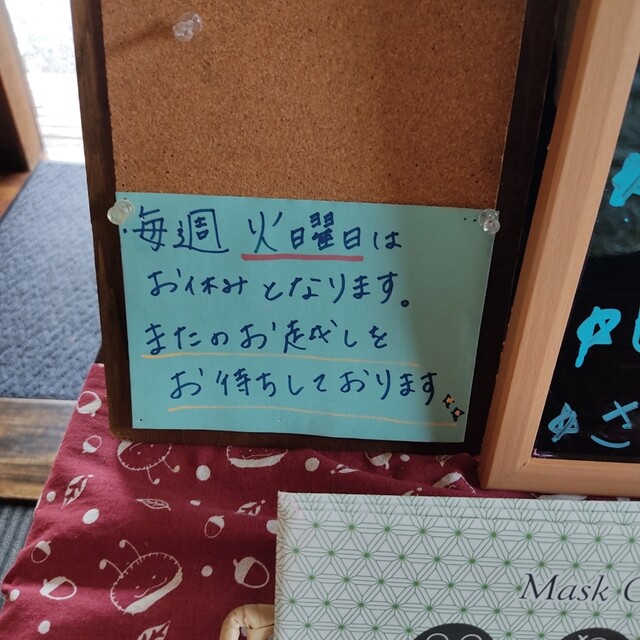 毎週 火曜日は
お休みとなります。
またのお越しを
お待ちしております
Mask